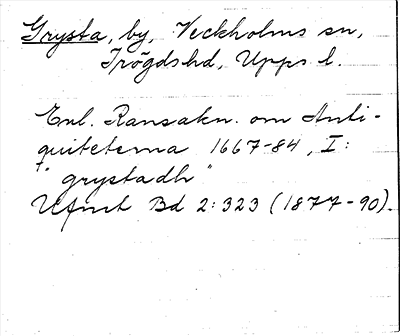 Grysta, by, Veckholms sn,
Trögdshd, Upps l.
Enl. Ransakn. om Anti-
quiteterna 1667-84, I:
"grystadh"
Ufmt Bd 2:323 (1877-90).